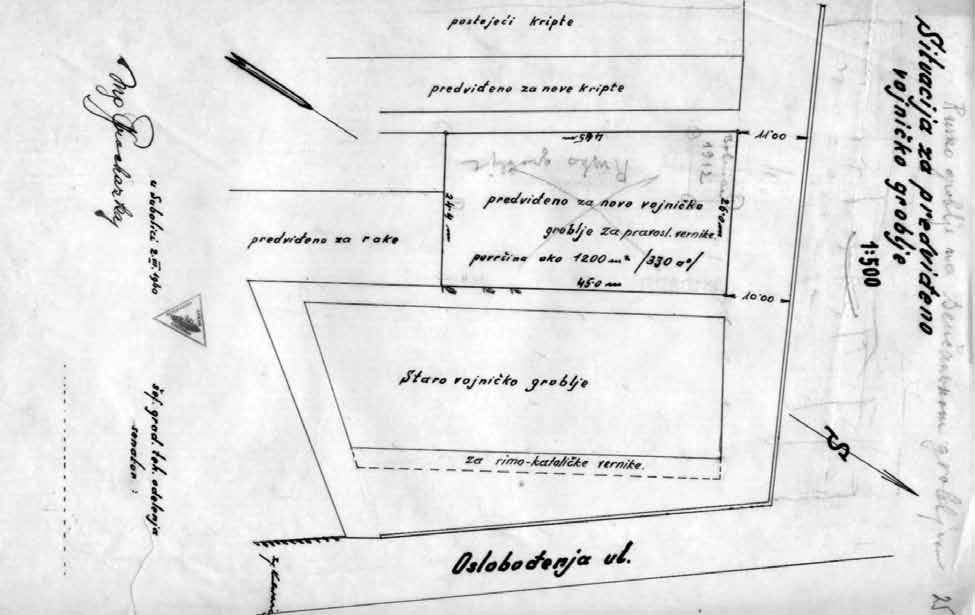 Situacija za predviđeno
vojničko groblje
1:500
postojeći kripte
predviđeno za nove kripte
11.00
1912
Rusko groblje
predviđeno za novo vojničko
groblje za pravosl. vernike.
površina oko 1200 m² /330 a°/
45.0 m
24.4 m
26.0 m
10.00
predviđeno za rake
Staro vojničko groblje
za rimo-katoličke vernike.
S
Oslobođenja ul.
u Subotici
šef. grad. teh. odelenja
senator:
25